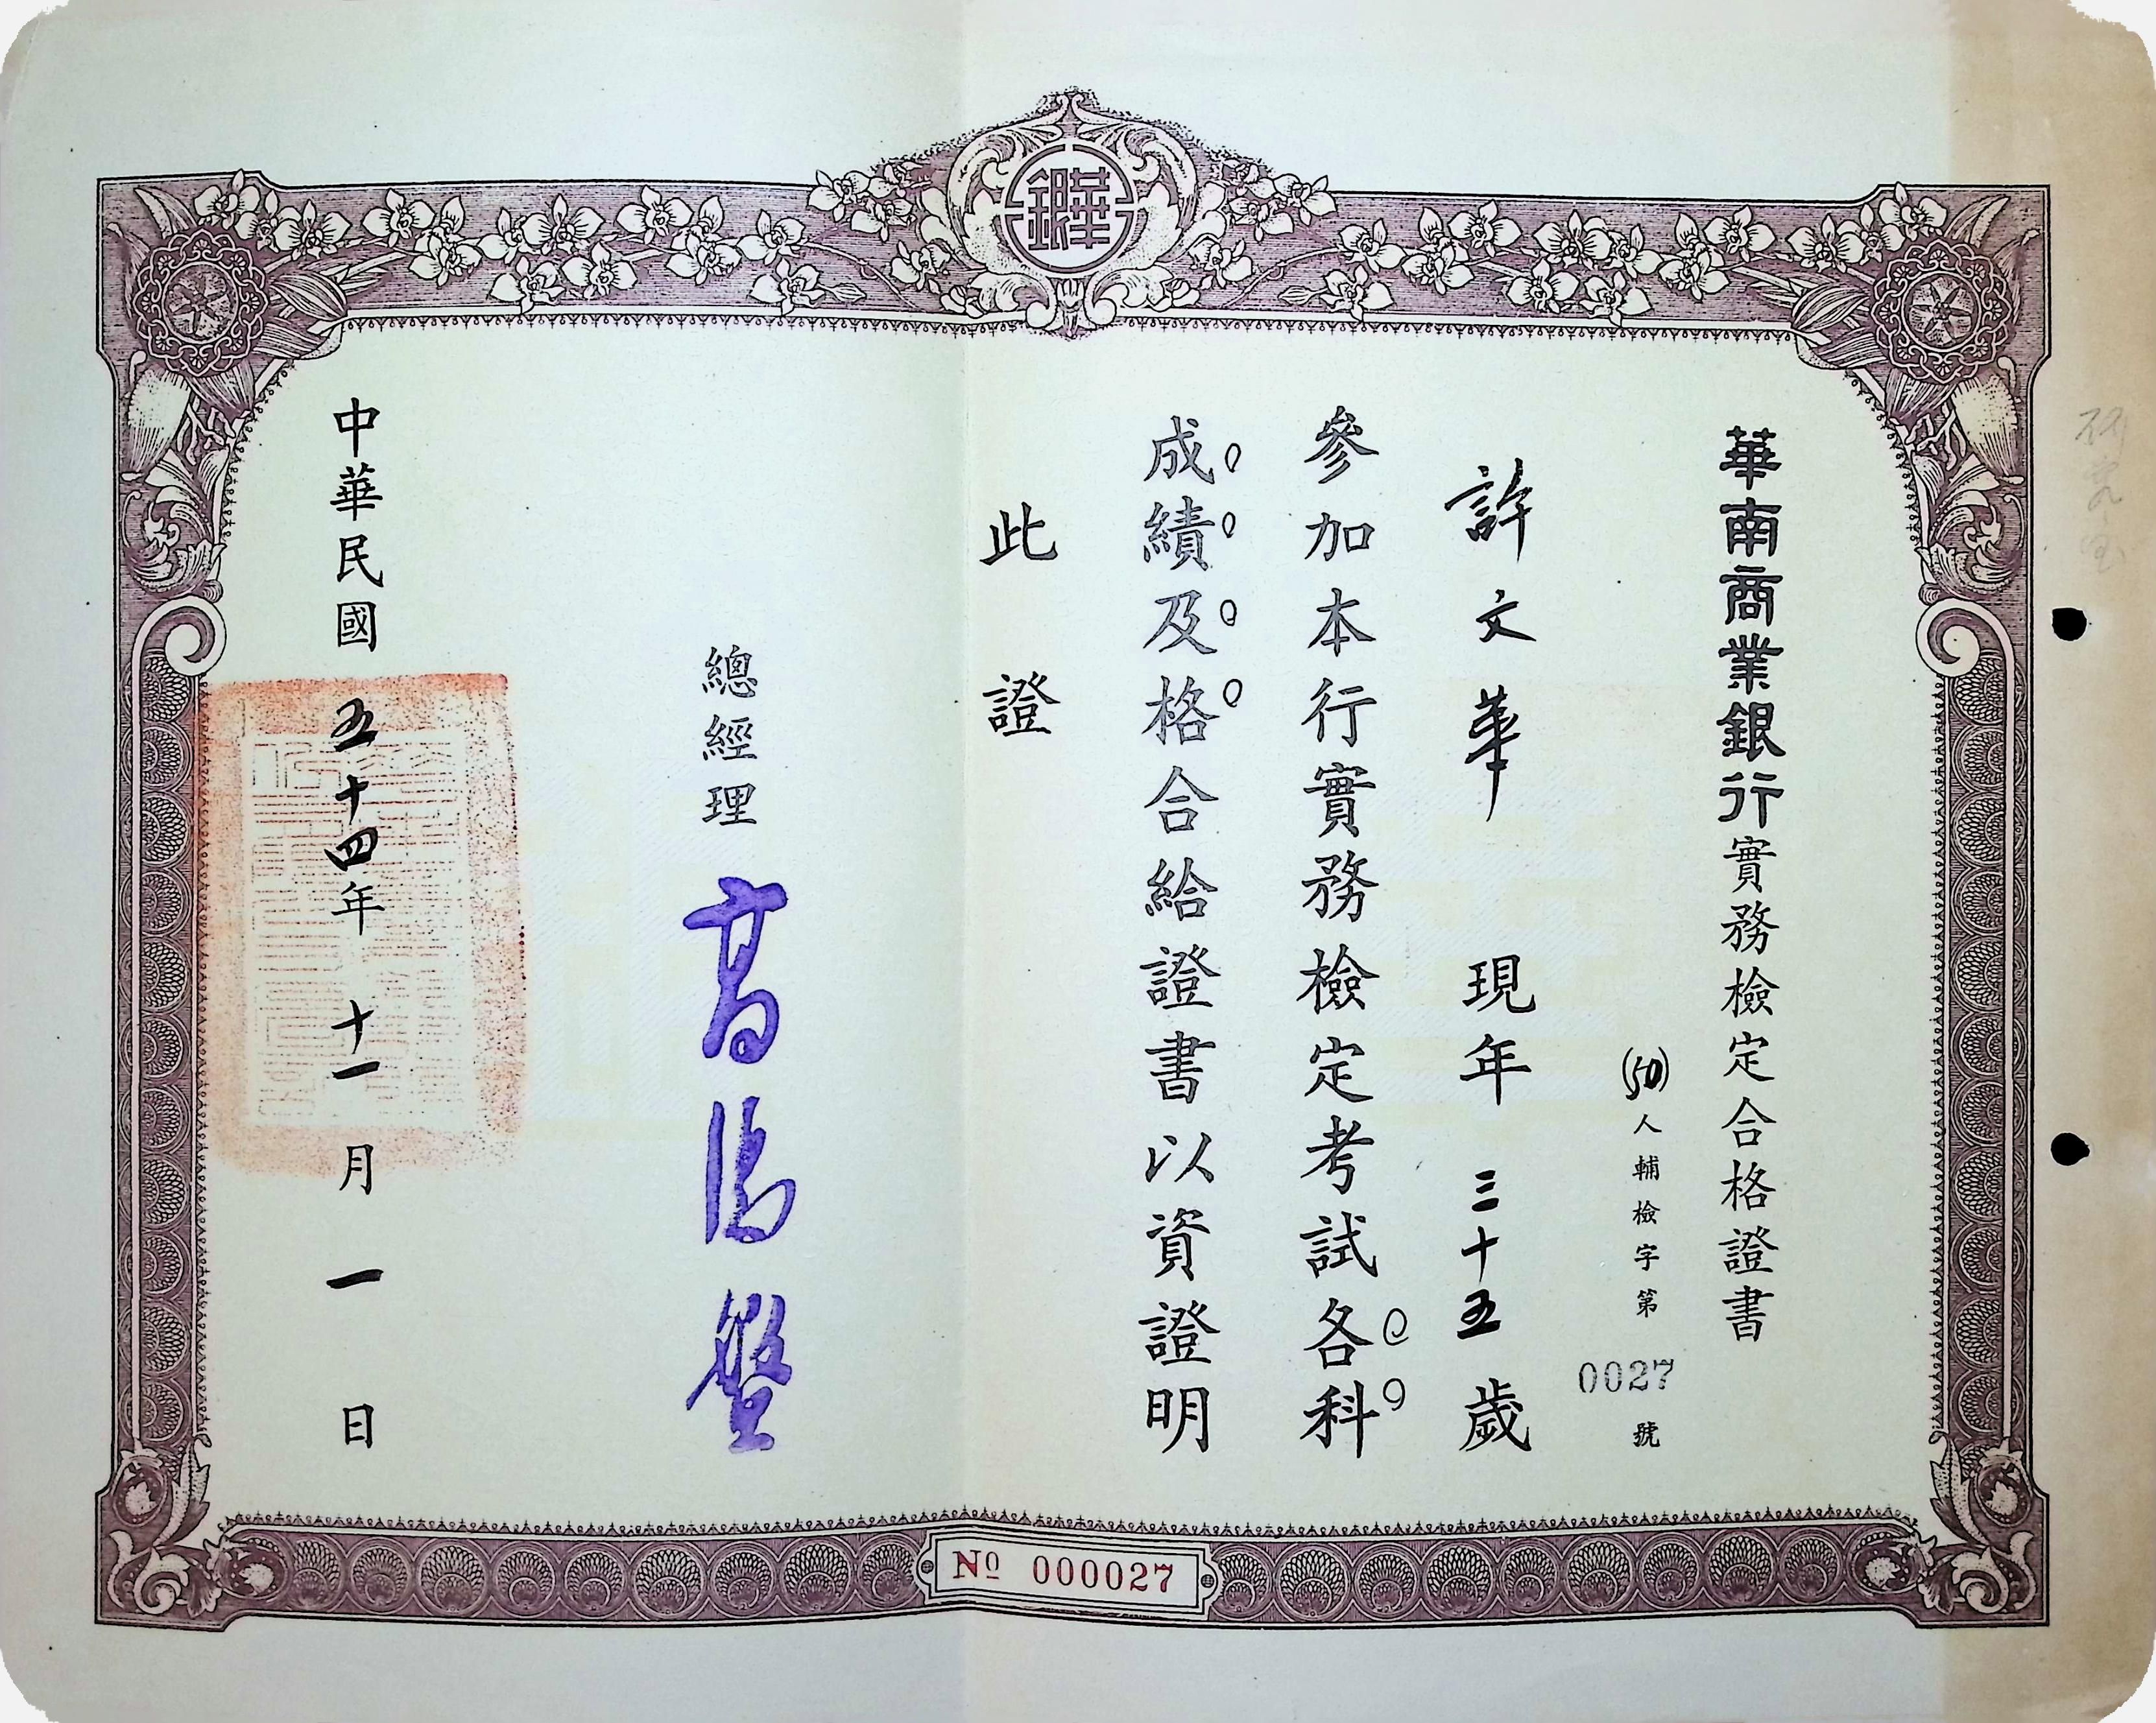 華南商業銀行實務檢定合格證書
(50)人輔檢字第0027號
許文華 現年三十五歲
參加本行實務檢定考試各科
成績及格合給證書以資證明
此證
總經理 高湯盤
中華民國五十四年十一月一日
華銀
No 000027